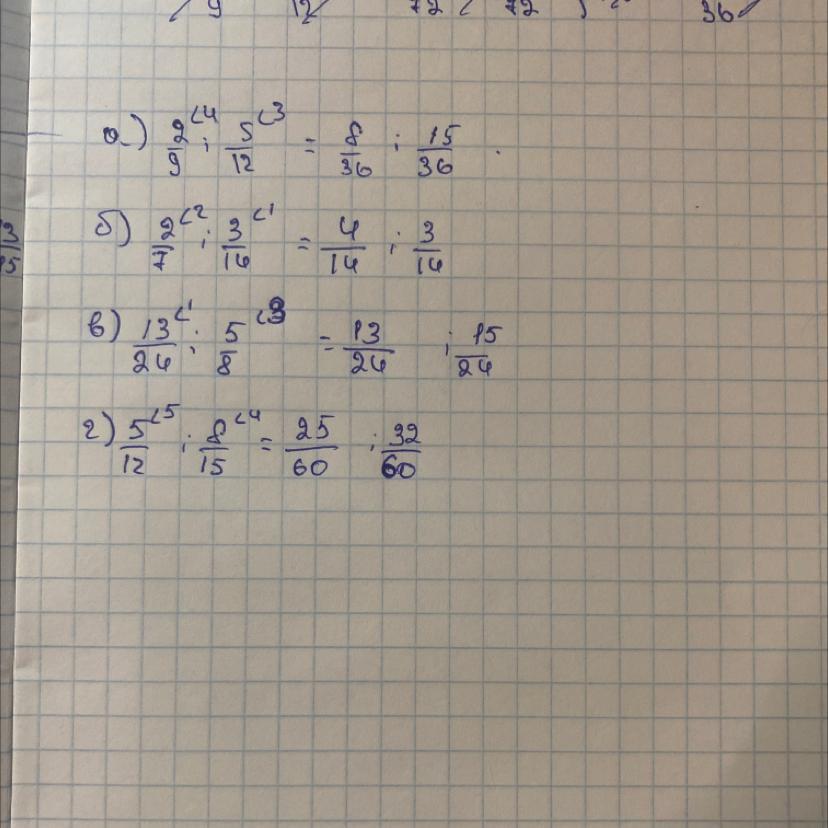 9 12 72 72 36
а) 2/9 <4 ; 5/12 <3 = 8/36 ; 15/36 .
б) 2/7 <2 ; 3/14 <1 = 4/14 ; 3/14
в) 13/24 <1 ; 5/8 <3 = 13/24 ; 15/24
г) 5/12 <5 ; 8/15 <4 = 25/60 ; 32/60